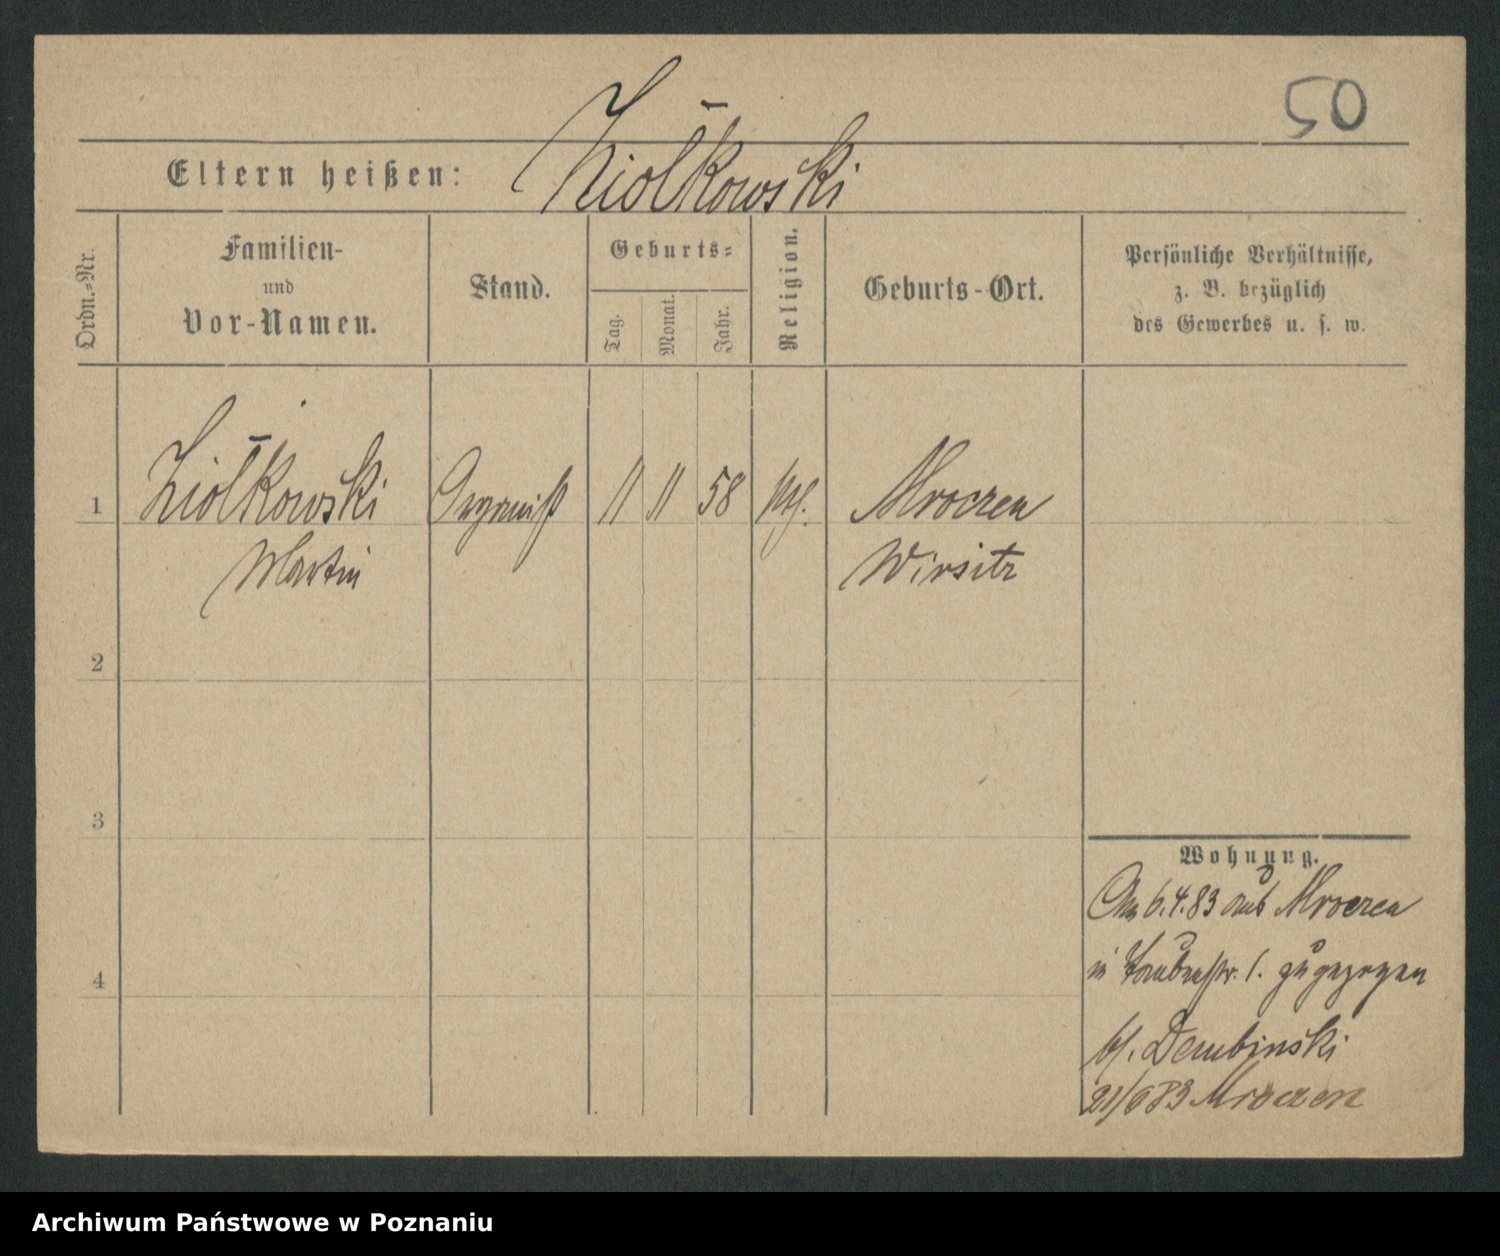 50
Eltern heißen: Ziółkowski
Ordn.-Nr.
Familien-
und
Vor-Namen.
Stand.
Geburts-
Tag.
Monat.
Jahr.
Religion.
Geburts-Ort.
Persönliche Verhältnisse,
z. B. bezüglich
des Gewerbes u. s. w.
1 Ziółkowski Organist 11 11 58 kth. Mroczen
Martin Wirsitz
2
3
4
Wohnung.
Am 6.4.83 aus Mroczen
in Taubenstr. 1. zugezogen
bf. Dembinski
21/6 83 Mroczen
Archiwum Państwowe w Poznaniu